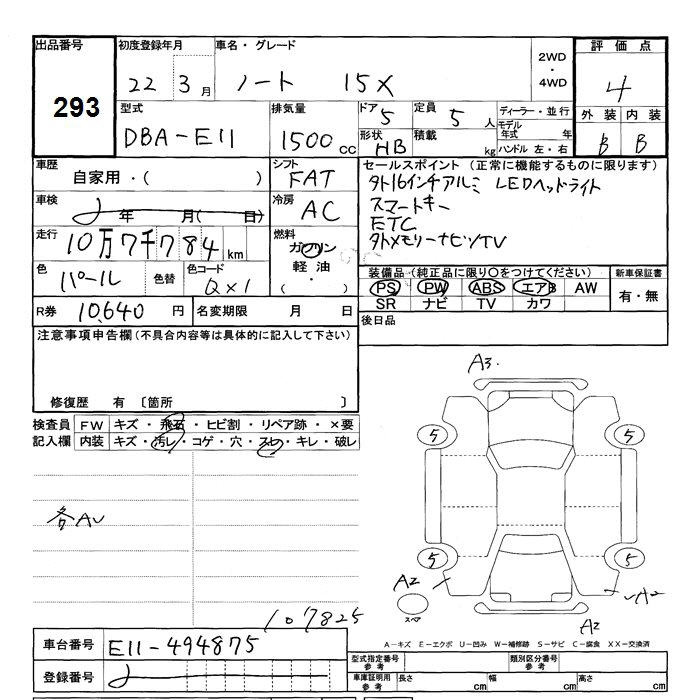 出品番号 初度登録年月 車名・グレード 2WD・4WD 評価点
293 22 3月 ノート 15X 4
型式 排気量 ドア 5 定員 5人 ディーラー・並行 外装 内装
DBA-E11 1500cc 形状 HB 積載 kg モデル年式 年 ハンドル 左・右 B B
車歴 自家用・( ) シフト FAT セールスポイント (正常に機能するものに限ります)
車検 年 月( 日) 冷房 AC 外16インチアルミ LEDヘッドライト
スマートキー
ETC
外メモリーナビTV
走行 10万7千784km 燃料 ガソリン 軽油・( )
色 パール 色替 色コード QX1
装備品 (純正品に限り○をつけてください) 新車保証書
PS PW ABS エアB AW 有・無
SR ナビ TV カワ
R券 10,640円 名変期限 月 日 後日品
注意事項申告欄(不具合内容等は具体的に記入して下さい)
修復歴 有 〔箇所 〕
検査員 FW キズ・飛石・ヒビ割・リペア跡・×要
記入欄 内装 キズ・汚レ・コゲ・穴・スレ・キレ・破レ
A3
5 5
各AU
5 5
A2 A2
スペア
A2
107825
A-キズ E-エクボ U-凹み W-補修跡 S-サビ C-腐食 XX-交換済
車台番号 E11-494875 型式指定番号 参考 類別区分番号 参考
登録番号 車庫証明用 参考 長さ cm 幅 cm 高さ cm